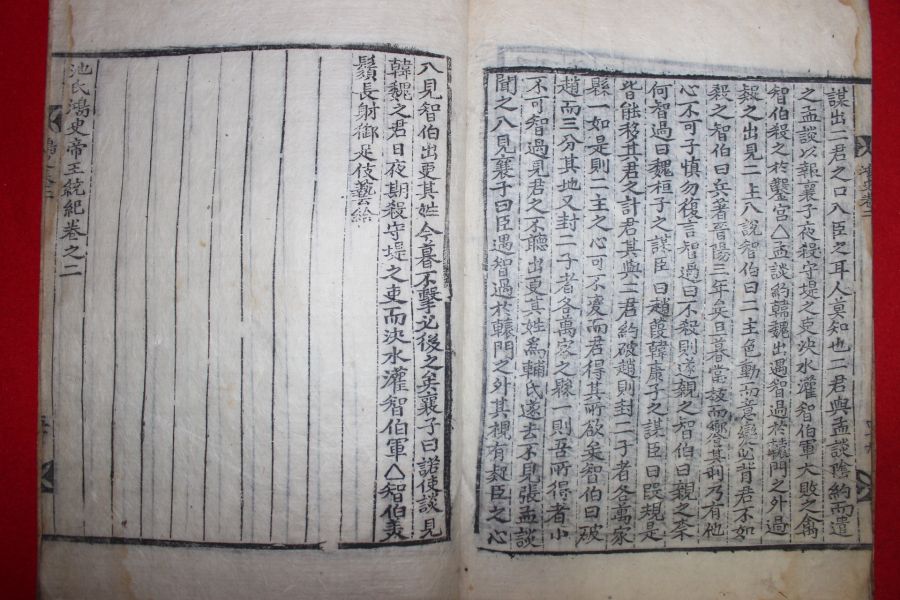 謀出二君之口入臣之耳人莫知也二君與孟談陰約而遣
之孟談以報襄子夜殺守堤之吏決水灌智伯軍大敗之禽
智伯殺之於鑿宮△孟談約韓魏出遇智過於轅門之外過
之出見二上入說智伯曰二主色動而意變必背君不如
殺之智伯曰兵著晉陽三年矣旦暮當拔而嚮其利乃有他
心不可子慎勿復言智過曰不殺則遂親之智伯曰親之柰
何智過曰魏桓子之謀臣曰趙葭韓康子之謀臣曰段規是
皆能移其君之計君其與二君約破趙則封二子者各萬家
縣一如是則二主之心可不變而君得其所欲矣智伯曰破
趙而三分其地又封二子者各萬家之縣一則吾所得者小
不可智過見君之不聽出更其姓爲輔氏遂去不見張孟談
聞之入見襄子曰臣遇智過於轅門之外其視有疑臣之心
入見智伯出更其姓今暮不擊必後之矣襄子曰諾使談見
韓魏之君日夜期殺守堤之吏而決水灌智伯軍△智伯美
鬚長射御足伎藝給
池氏鴻史帝王統紀卷之二